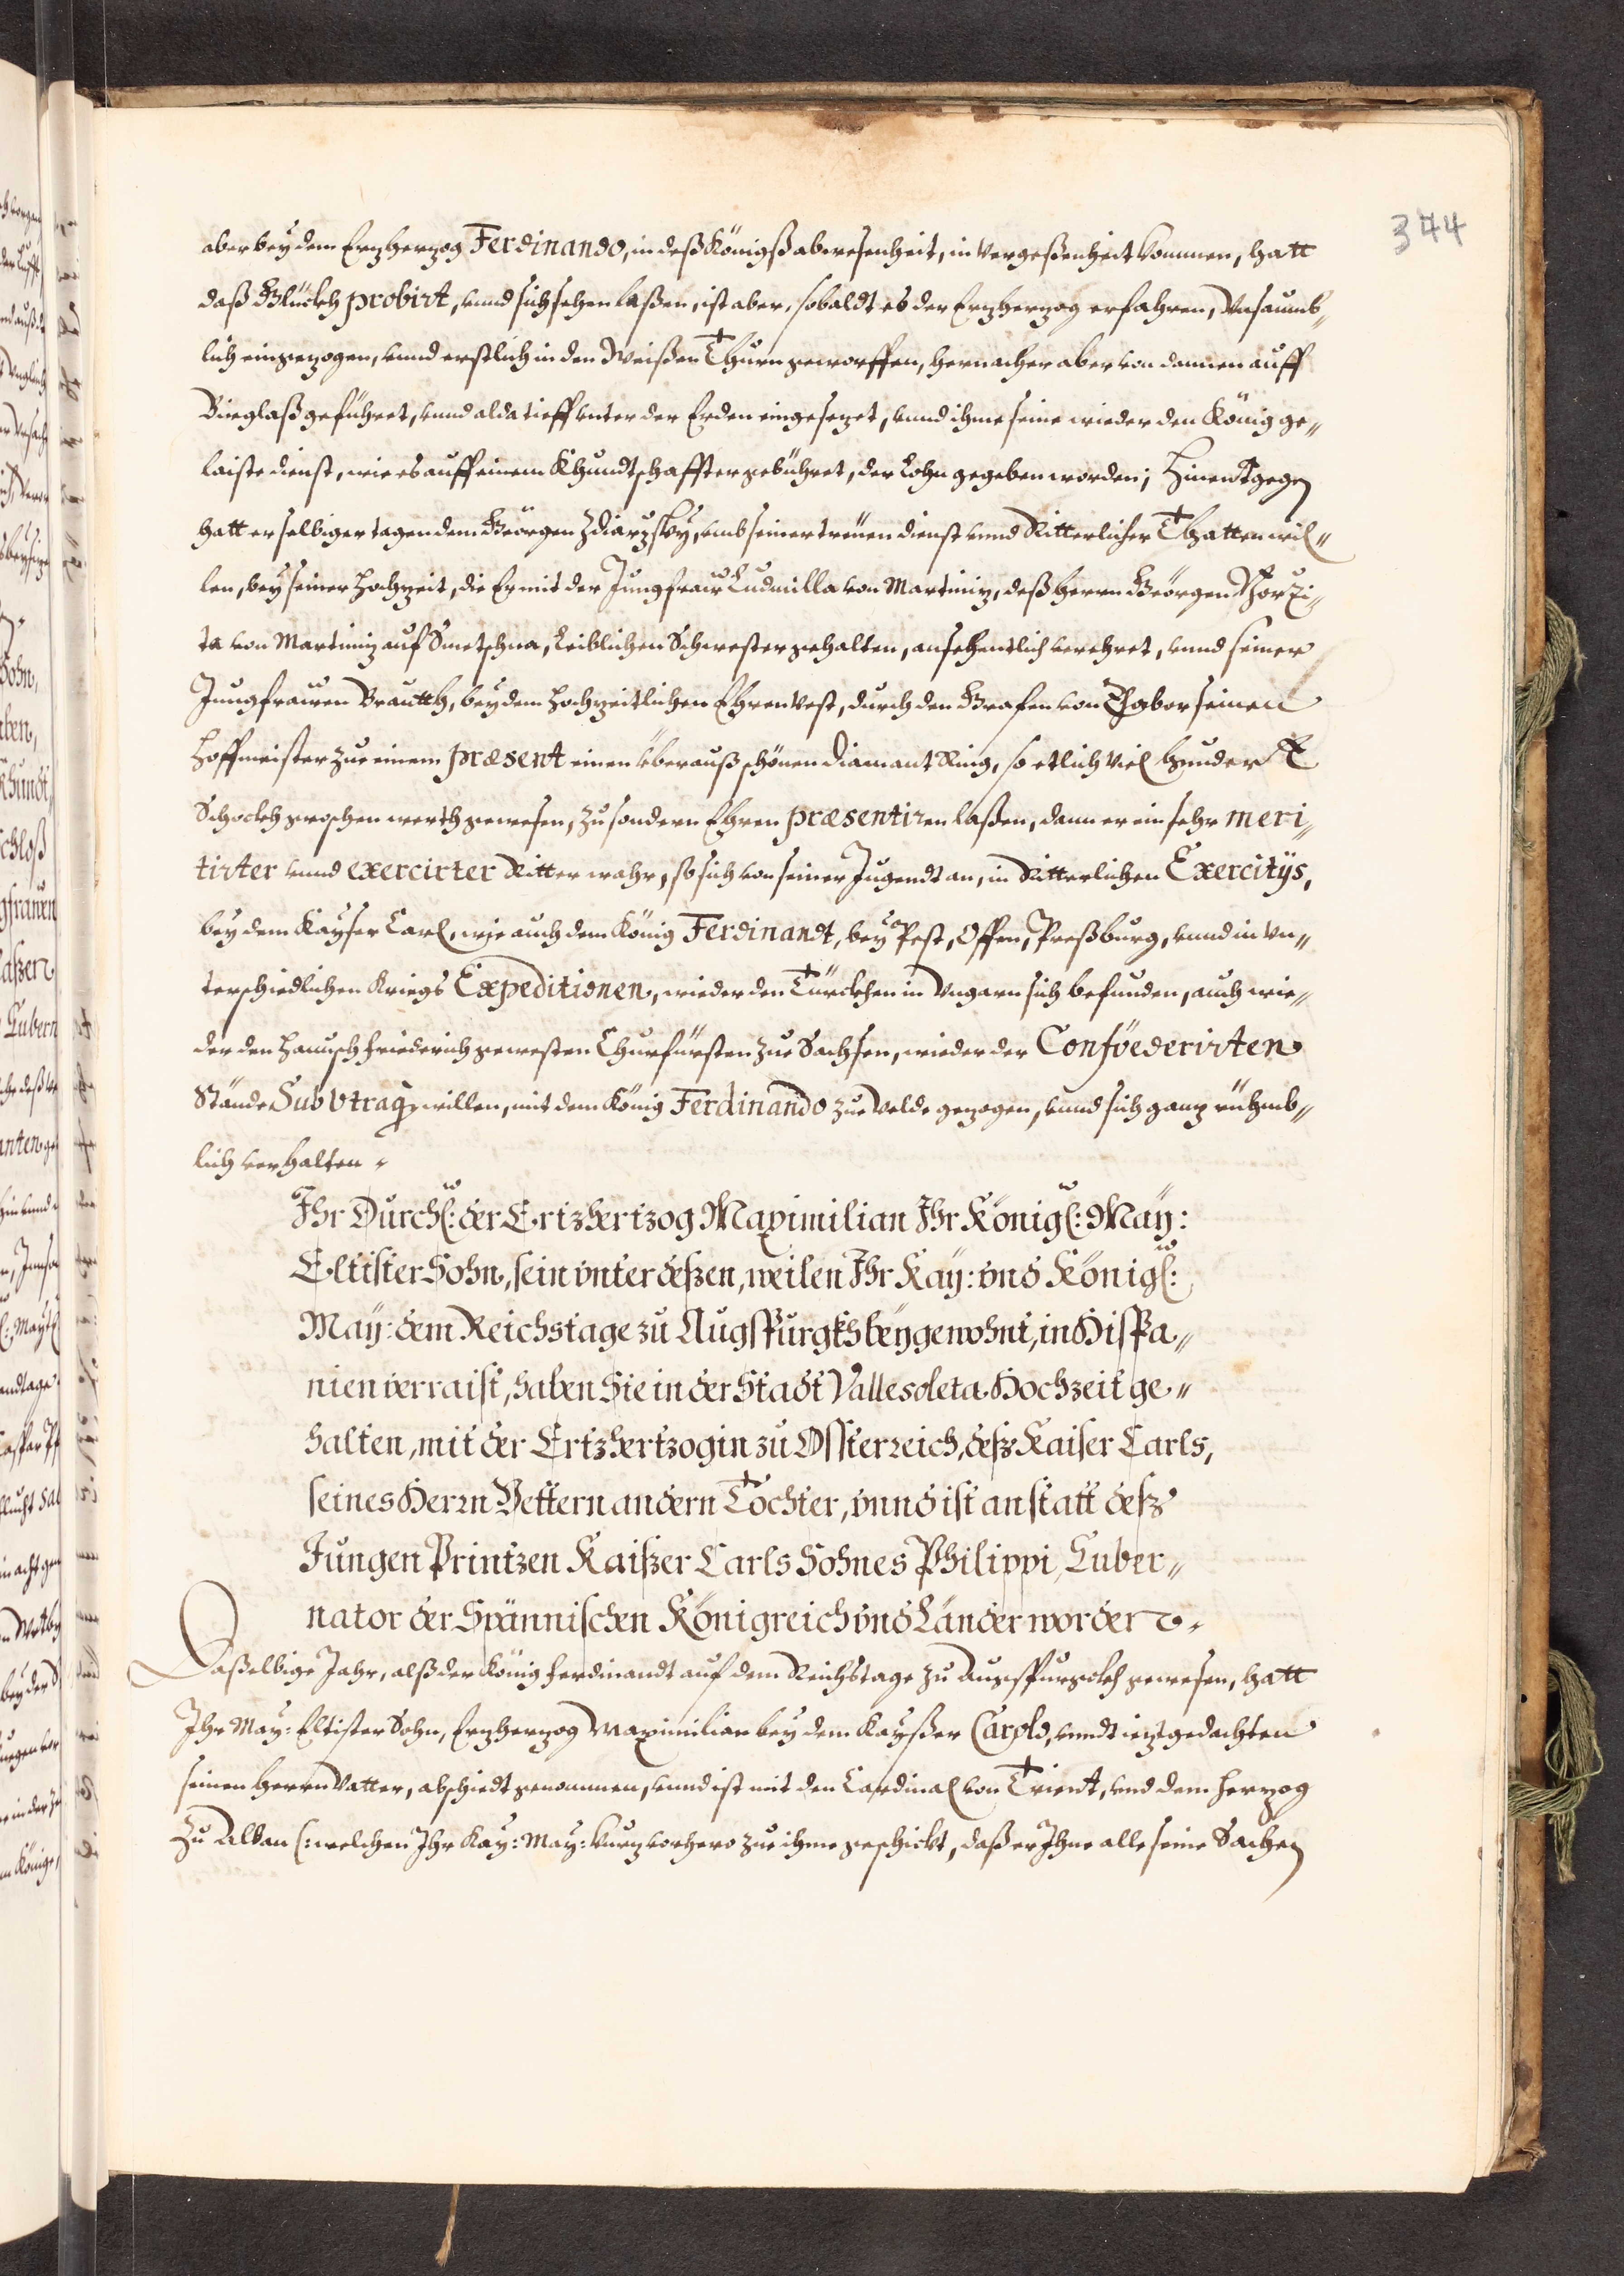 344
aber bey dem Erzherzog Ferdinando, in deß Königß abwesenheit, in vergeßenheit kommen, hatt
daß Glückh probirt, unnd sich sehen laßen, ist aber, sobaldt es der Erzherzog erfahren, Unsaumb„
lich eingezogen, unnd erstlich in den Weißen Thurn geworffen, hernacher aber von dannen auff
Bürglaß geführet, unnd alda tieff unter der Erden eingesezet, unnd ihme seine wieder den König ge„
laiste dienst, wie es auff einem Khundtschaffter gebühret, der Lohn gegeben worden; Hinentgegen
hatt er selbiger tagen dem Geörgen Zdiarzsky, umb seiner treüen dienst unnd Ritterlicher Thatten wil„
len, bey seiner Hochzeit, die Er mit der Jungfraw Ludmilla von Martiniz, deß Herrn Geörgen Borzi„
ta von Martiniz auf Smetschna, Leiblichen Schwester gehalten, ansehentlich verehret, unnd seiner
Jungfrauen Brautth, bey dem Hochzeitlichen Ehren Vest, durch den Grafen von Thabor seinen
Hoffmeister zue einem præsent einen überauß schönen Diamant Ring, so etlich viel hundert
Schockh groschen werth gewesen, zu sondern Ehren præsentiren laßen, dann er ein sehr meri„
tirter unnd exercirter Ritter wahr, so sich von seiner Jugendt an, in Ritterlichen Exercitÿs,
bey dem Kayser Carl, wie auch dem König Ferdinandt, bey Pest, Offen, Preßburg, unnd in un„
terschiedlichen Kriegs Expeditionen, wieder den Türckhen in Ungarn sich befunden, auch wie„
der den Hannsch Friederich gewesten Churfürsten zue Sachsen, wieder der Confœderirten
Stände Sub Utraq willen, mit dem König Ferdinando zue Velde gezogen, unnd sich ganz rühmb„
lich verhalten.
Ihr Durchl: der Ertzhertzog Maximilian Ihr Königl: May:
Eltister Sohn, sein vnter deßen, weilen Ihr Kay: vnd Königl:
May: dem Reichstage zu Augspurgkh beygewohnt, in Hispa„
nien verraist, haben Sie in der Stadt Vallesoleta Hochzeit ge„
halten, mit der Ertzhertzogin zu Ossterreich, deß Kaiser Carls,
seines Herrn Vettern andern Tochter, vnnd ist anstatt deß
Jungen Printzen Kaißer Carls Sohnes Philippi, Guber„
nator der Spännischen Königreich vnd Länder worden.
Daßelbige Jahr, alß der König Ferdinandt auf dem Reichstage zu Augspurgckh gewesen, hatt
Ihr May: Eltister Sohn, Erzherzog Maximilian bey dem Kayßer Carolo, unndt iezt gedachten
seinen Herrn Vatter, abschiedt genommen, unnd ist mit den Cardinal von Trient, und dem Herzog
zu Alban (: welchen Ihr Kay: May: kurz vorhero zue ihme geschickt, daß er Ihne alle seine Sachen